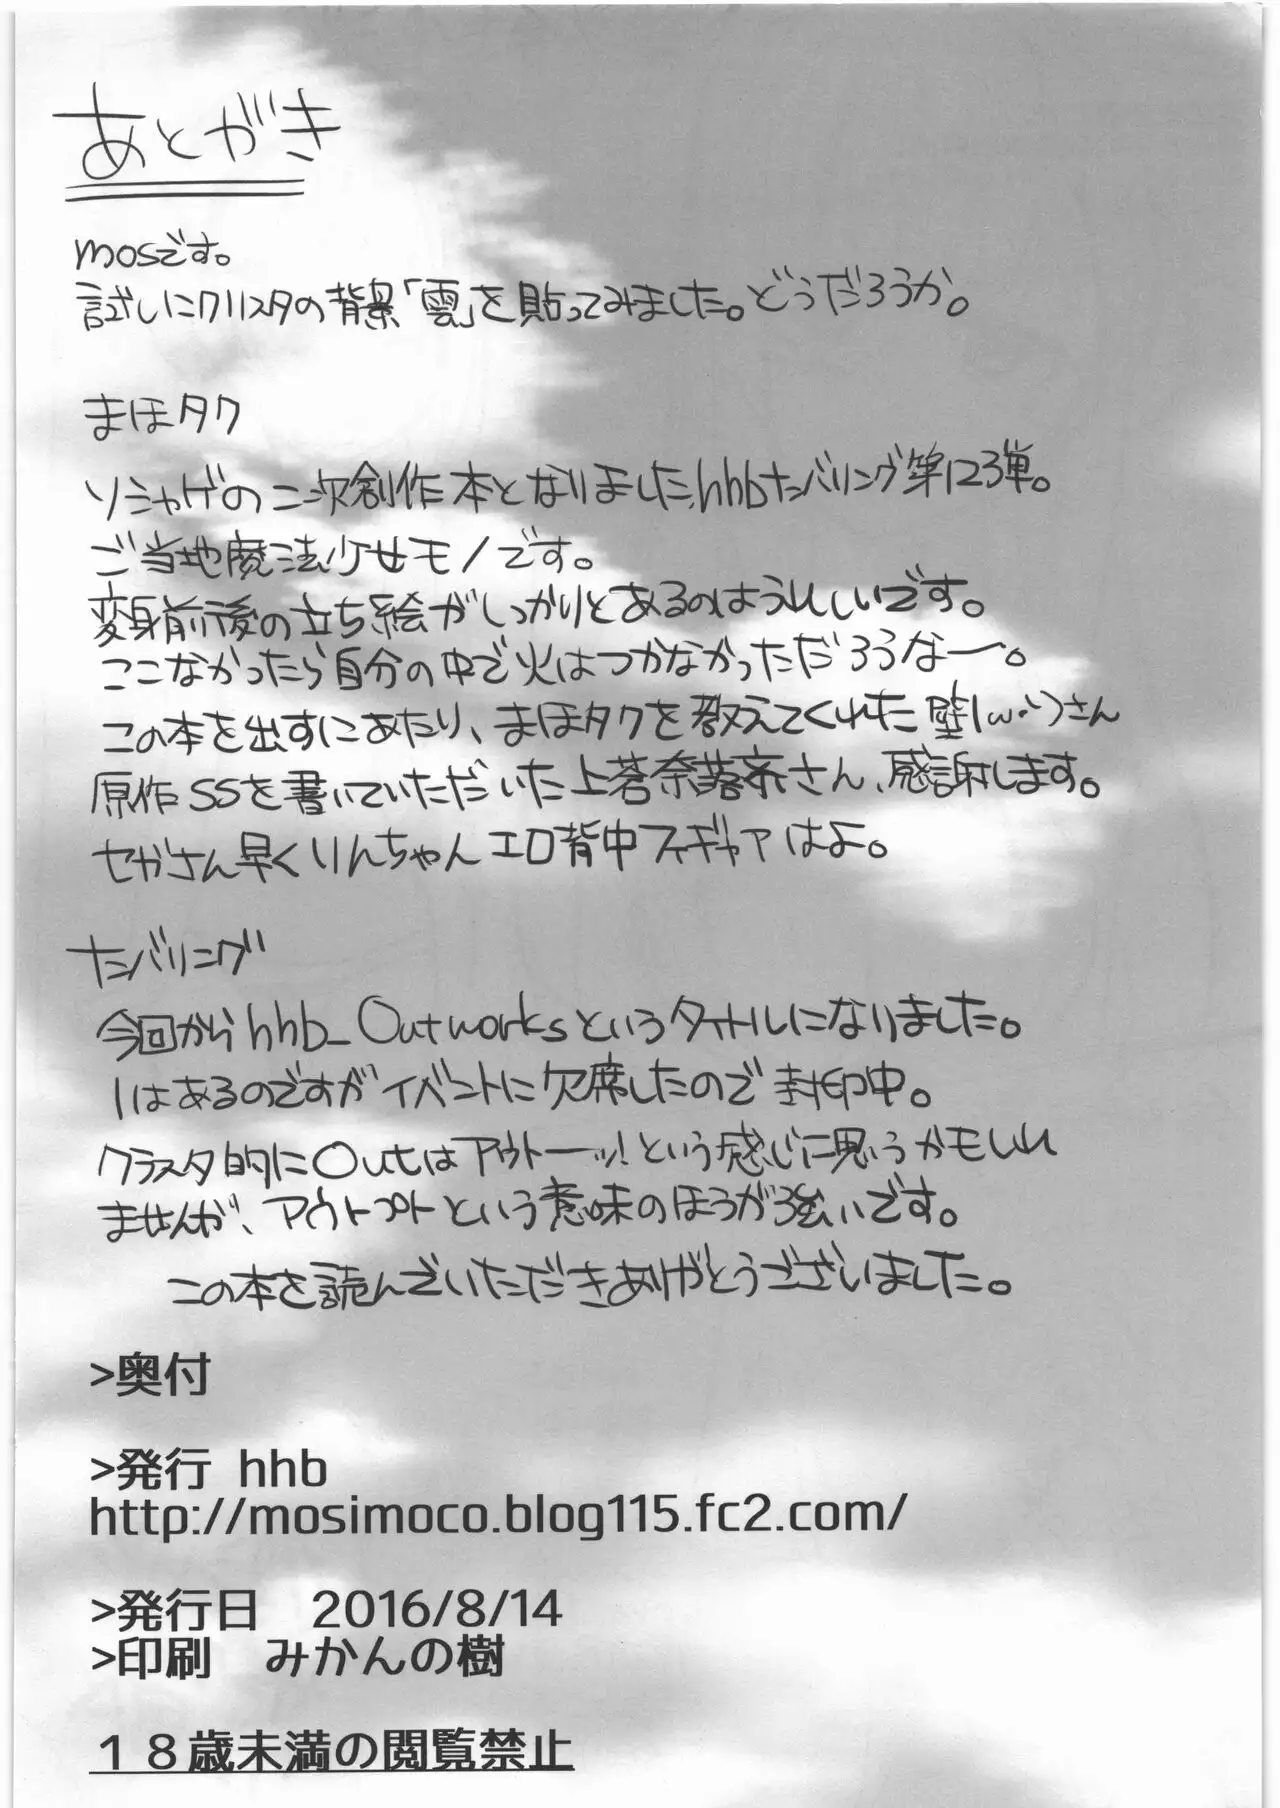 あとがき
mosです。
試しにクリスタの背景「雲」を貼ってみました。どうだろうか。
まほタク
ソシャゲの二次創作本となりました、hhbナンバリング第123弾。
ご当地魔法少女モノです。
変身前後の立ち絵がしっかりとあるのはうれしいです。
ここなかったら自分の中で火はつかなかっただろうなー。
この本を出すにあたり、まほタクを教えてくれた壁|ω・)さん
原作SSを書いていただいた上苙奈落斎さん、感謝します。
セガさん早くりんちゃんエロ背中フィギャアはよ。
ナンバリング
今回からhhb_Outworksというタイトルになりました。
1はあるのですがイベントに欠席したので封印中。
クラスタ的にOutはアウトーッ!という感じに思うかもしれ
ませんが、アウトプットという意味のほうが強いです。
この本を読んでいただきありがとうございました。
>奥付
>発行 hhb
http://mosimoco.blog115.fc2.com/
>発行日 2016/8/14
>印刷 みかんの樹
１８歳未満の閲覧禁止